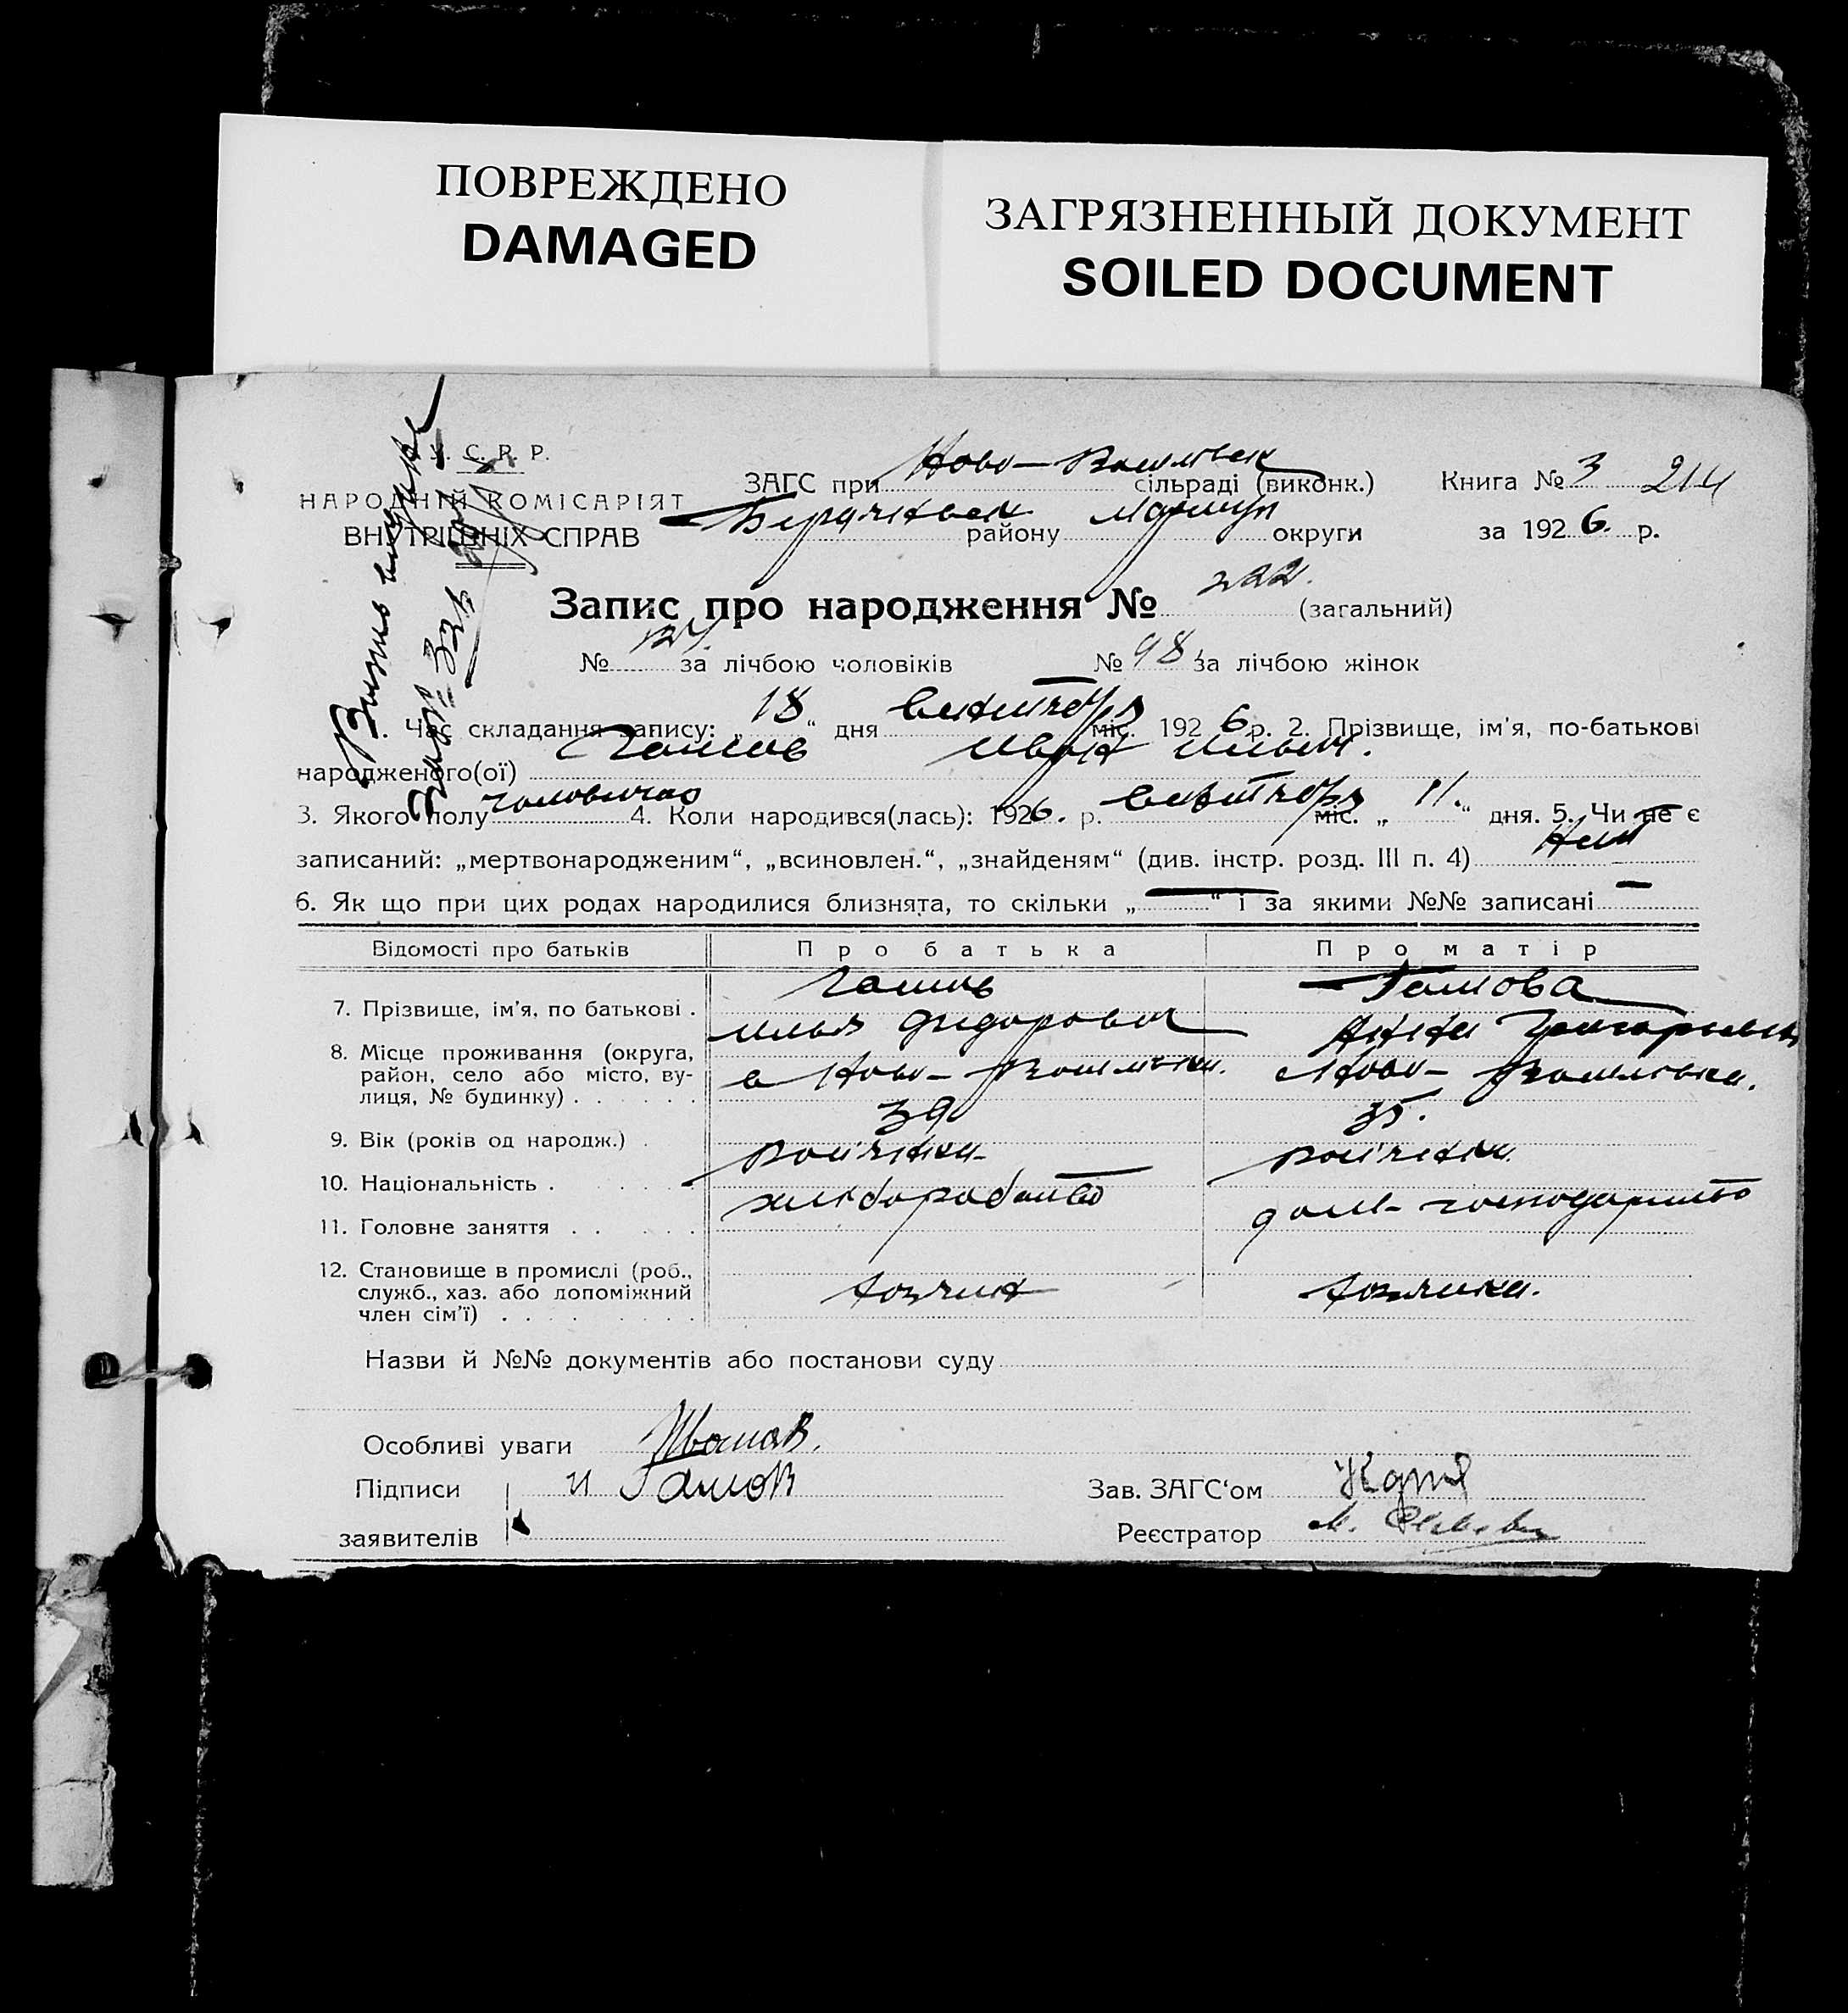 ПОВРЕЖДЕНО
DAMAGED
ЗАГРЯЗНЕННЫЙ ДОКУМЕНТ
SOILED DOCUMENT
У. С. Р. Р.
НАРОДНІЙ КОМІСАРІЯТ
ВНУТРІШНІХ СПРАВ
ЗАГС при Ново-Васильвск сільраді (виконк.)
Бердянськ району Маріуп округи
Книга № 3 214
за 1926. р.
Запис про народження № 222. (загальний)
№ 124. за лічбою чоловіків № 98 за лічбою жінок
1. Час складання запису: „18“ дня міс. 1926 р. 2. Прізвище, ім'я, по-батькові
народженого(ої) Гамов Иван Ильич.
3. Якого полу чоловичао 4. Коли народився(лась): 1926. р. міс. „11.“ дня. 5. Чи не є
записаний: „мертвонародженим“, „всиновлен.“, „знайденям“ (див. інстр. розд. III п. 4)
6. Як що при цих родах народилися близнята, то скільки „—“ і за якими №№ записані —
Відомості про батьків
Про батька
Про матір
7. Прізвище, ім'я, по батькові .
Гамов
Илья Фидорович
Гамова
Анна Григорьевн
8. Місце проживання (округа,
район, село або місто, ву-
лиця, № будинку) . . . . . .
в Ново-Васильевки.
Ново-Васильевка.
9. Вік (років од народж.) .
39
35.
10. Національність . . . . . .
11. Головне заняття . . . . .
хліборобство
дом-господарство
12. Становище в промислі (роб.,
служб., хаз. або допоміжний
член сім'ї) . . . . . . . . .
хозяин
хозяика.
Назви й №№ документів або постанови суду
Особливі уваги
Підписи
заявителів
И Гамов
Зав. ЗАГС‘ом
Реєстратор